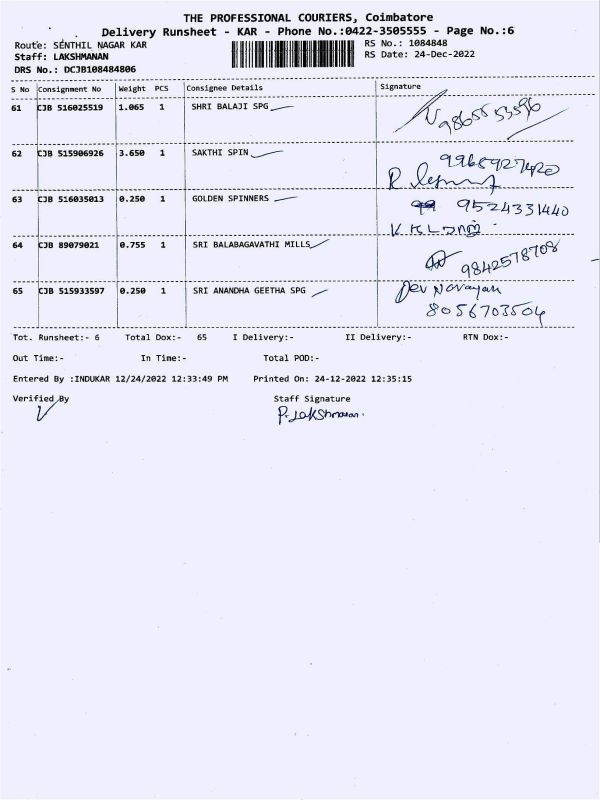 THE PROFESSIONAL COURIERS, Coimbatore
Delivery Runsheet - KAR - Phone No.:0422-3505555 - Page No.:6
Route: SENTHIL NAGAR KAR RS No.: 1084848
Staff: LAKSHMANAN RS Date: 24-Dec-2022
DRS No.: DCJB108484806
S No Consignment No Weight PCS Consignee Details Signature
61 CJB 516025519 1.065 1 SHRI BALAJI SPG 9865553596
62 CJB 515906926 3.650 1 SAKTHI SPIN 9968927420
63 CJB 516035013 0.250 1 GOLDEN SPINNERS 9524331440
64 CJB 89079021 0.755 1 SRI BALABAGAVATHI MILLS 9842578708
65 CJB 515933597 0.250 1 SRI ANANDHA GEETHA SPG Dev Narayan
8056703504
Tot. Runsheet:- 6 Total Dox:- 65 I Delivery:- II Delivery:- RTN Dox:-
Out Time:- In Time:- Total POD:-
Entered By :INDUKAR 12/24/2022 12:33:49 PM Printed On: 24-12-2022 12:35:15
Verified By Staff Signature
P. Lakshmanan.